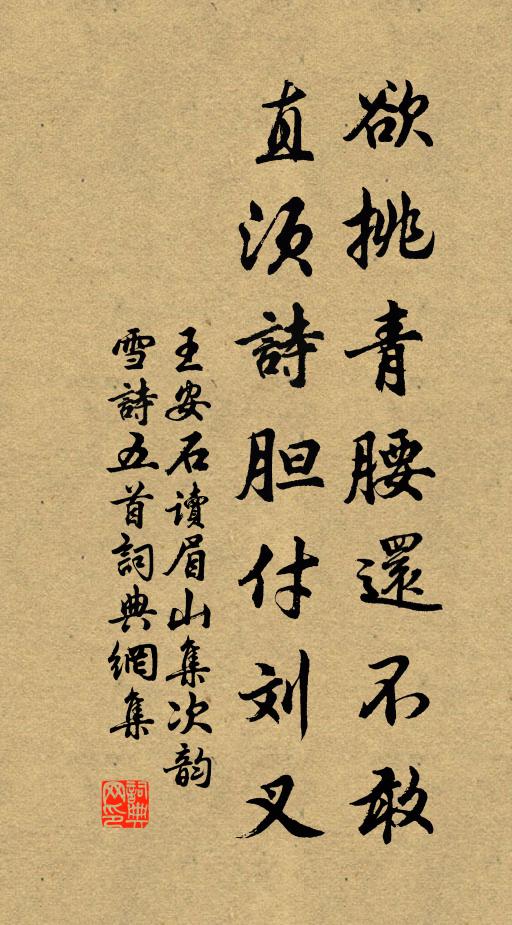 欲挑青腰還不敢
直须詩胆付刘叉
王安石讀眉山集次韵
雪詩五首詞典網集
詞典
网印